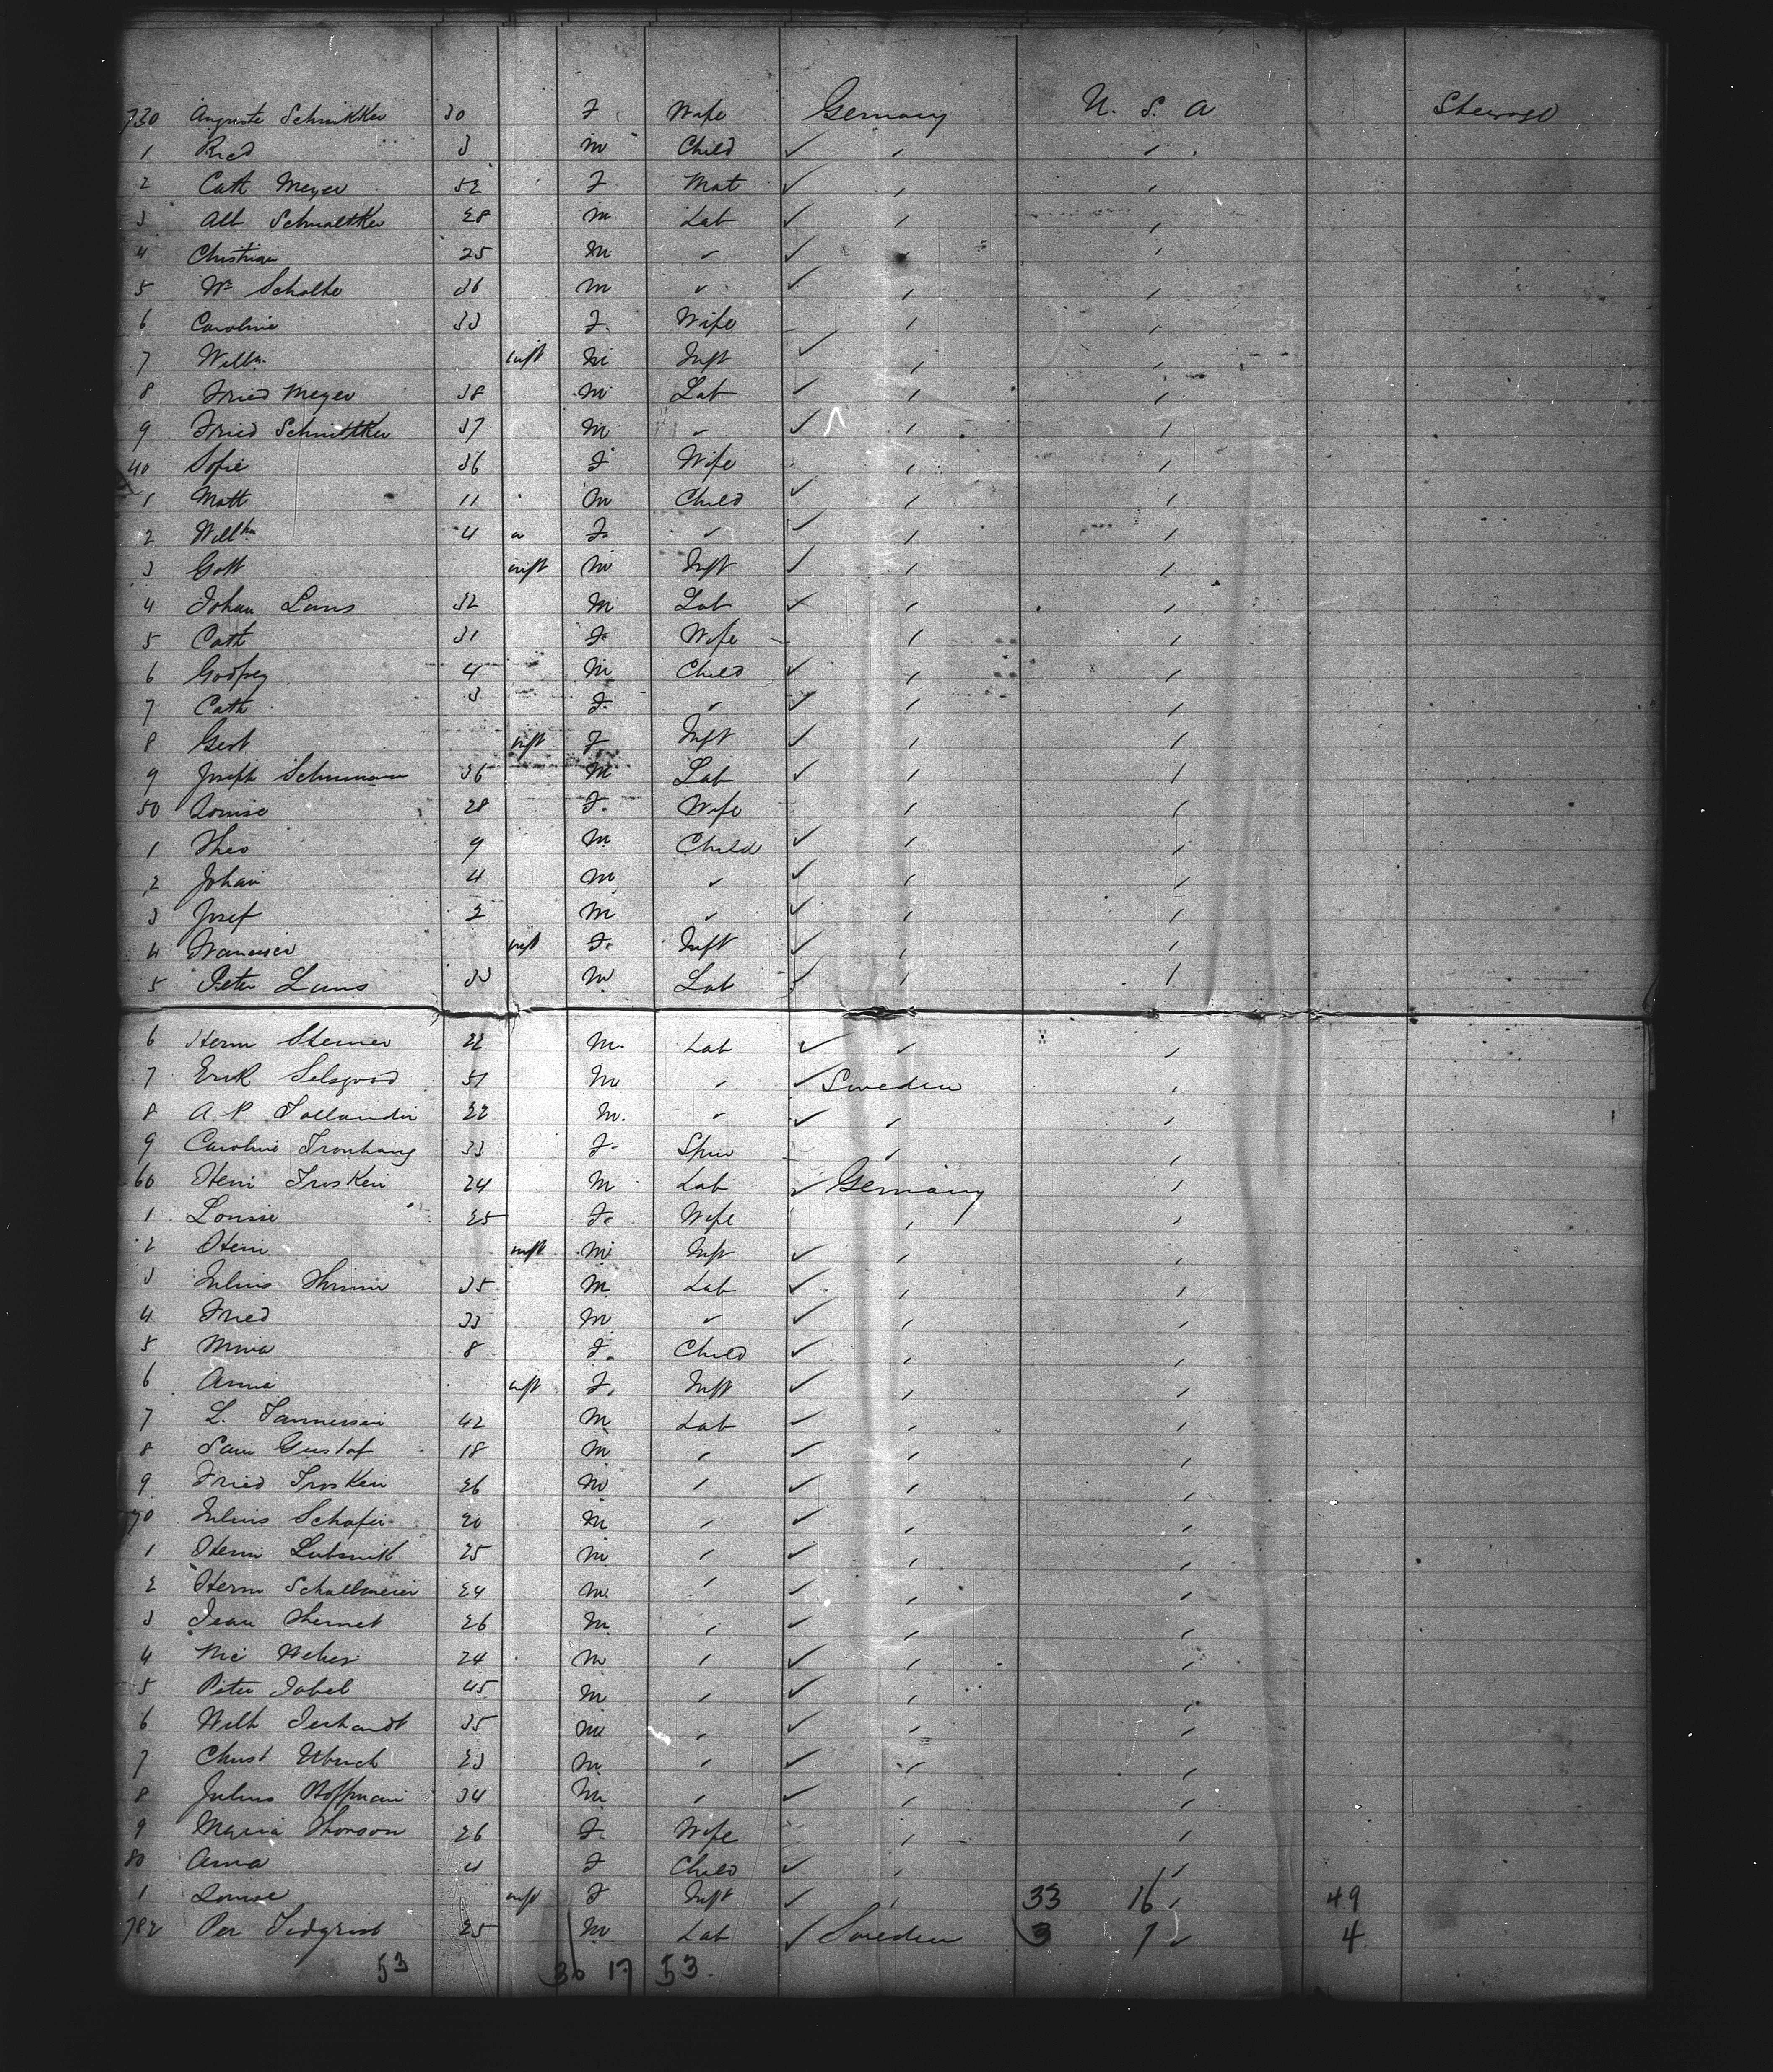 730 Auguste Schnittker 30 F Wife Germany U. S. A Steerage
1 Fred 3 M Child ✓ , ,
2 Cath Meyer 52 F Mat ✓ , ,
3 Alb Schnattker 28 M Lab ✓ , ,
4 Christian 25 M " ✓ , ,
5 Wm Scholke 36 M " ✓ , ,
6 Caroline 33 F. Wife , ,
7 Willm. inft M Inft ✓ , ,
8 Fried Meyer 38 M Lab ✓ , ,
9 Fried Schnittker 37 M " ✓ , ,
40 Sofie 36 F Wife , ,
1 Matt 11 M Child ✓ , ,
2 Willhm 4 F. " ✓ , ,
3 Gott inft M Inft ✓ , ,
4 Johan Lans 32 M Lab ✓ , ,
5 Cath 31 F. Wife , ,
6 Godfrey 4 M Child ✓ , ,
7 Cath 3 F. " ✓ , ,
8 Gert inft F Inft ✓ , ,
9 Joseph Schumann 36 M Lab ✓ , ,
50 Louise 28 F. Wife , ,
1 Theo 9 M Child ✓ , ,
2 Johan 4 M " ✓ , ,
3 Josef 2 M " ✓ , ,
4 inft F. Inft ✓ , ,
5 Peter Lans 33 M Lab ✓ , ,
6 Herm Sterner 22 M. Lab ✓ , ,
7 Erik 51 M " ✓ Sweden ,
8 A P Tollandin 22 M. " ✓ , ,
9 Caroline 33 F. Spin , ,
60 Heni Trosken 24 M Lab ✓ Germany ,
1 Louise 25 F. Wife , ,
2 Heni inft M Inft ✓ , ,
3 Julius Thimm 35 M Lab ✓ , ,
4 Fried 33 M " ✓ , ,
5 Mina 8 F. Child ✓ , ,
6 Anna inft F. Inft ✓ , ,
7 L. 42 M Lab ✓ , ,
8 Sam Gustaf 18 M " ✓ , ,
9 Fried Trosken 26 M " ✓ , ,
70 Julius Schafer 20 M " ✓ , ,
1 Heni 25 M " ✓ , ,
2 Herm Schallmeier 24 M. " ✓ , ,
3 Jean Thernet 26 M. " ✓ , ,
4 Nic Weber 24 M " ✓ , ,
5 Peter Jabel 45 M " ✓ , ,
6 Wilh 35 M " ✓ , ,
7 Christ Ulrich 23 M. " ✓ , ,
8 Julius Hoffman 34 M. " ✓ , ,
9 Maria Thorson 26 F. Wife , ,
80 Anna 4 F Child ✓ , ,
1 Louise inft F Inft ✓ , 33 16 , 49
782 Per 25 M Lab ✓ Sweden 3 1 ✓ 4
53 36 17 53.